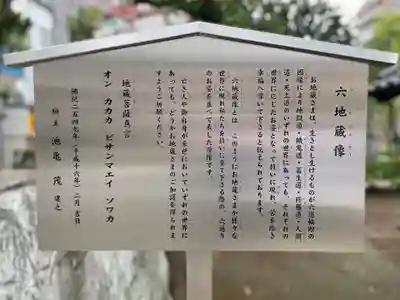 六地蔵像
お地蔵さまは、生きとし生けるものが六道輪廻の
因縁により地獄道・餓鬼道・畜生道・修羅道・人間
道・天上道のいずれの世界にあっても、それぞれの
世界に応じたお姿となって救いに現れ、苦を除き
幸福へ導いて下さると伝えられております。
六地蔵像とは、このようにお地蔵さまが様々な
世界に現れ私たちを救いに来て下さる際の、六通り
のお姿を並べて表した信仰です。
亡き人や御自身が来世においていずれの世界に
あっても、どうかお地蔵さまのご加護を得られま
すようご祈願ください。
地蔵菩薩真言
オン カカカ ビサンマエイ ソワカ
佛紀二五四七年(平成十六年)二月吉日
施主 池亀 茂 建之